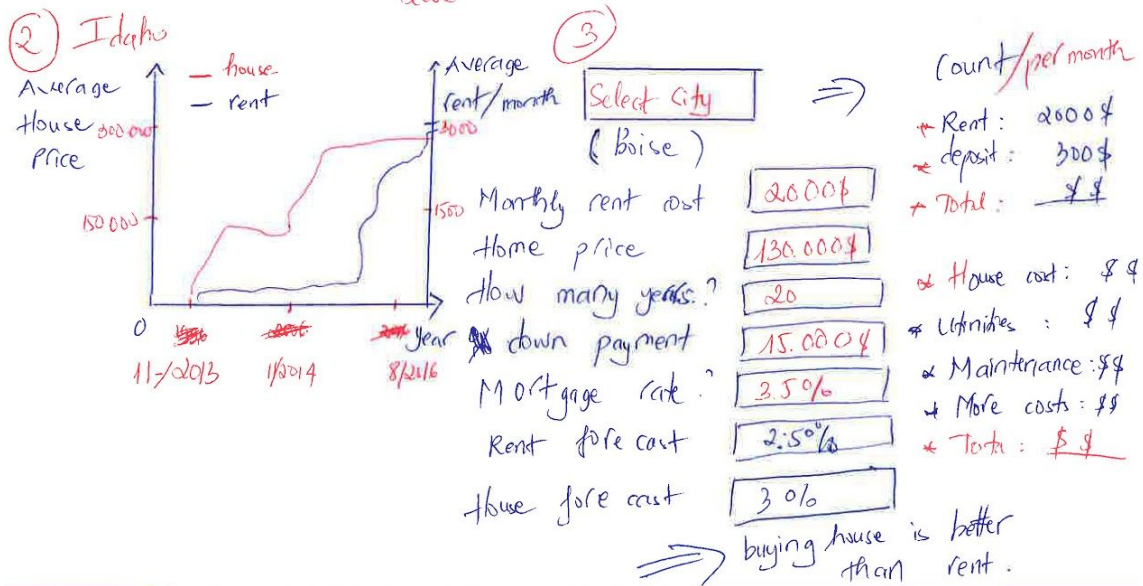 2 Idaho
Average House Price
house
rent
Average rent/month
300000
3000
150000
1500
0
year
11-/2013
1/2014
8/2016
3
Select City
(Boise)
Monthly rent cost
2000$
Home price
130.000$
How many years.?
20
down payment
15.000$
Mortgage rate?
3.5%
Rent fore cast
2.5%
House fore cast
3%
⇒ buying house is better
than rent.
⇒
Count/per month
* Rent: 2000$
* deposit: 300$
* Total: $$
* House cost: $$
* Utinities: $$
* Maintenance: $$
* More costs: $$
* Tota: $$